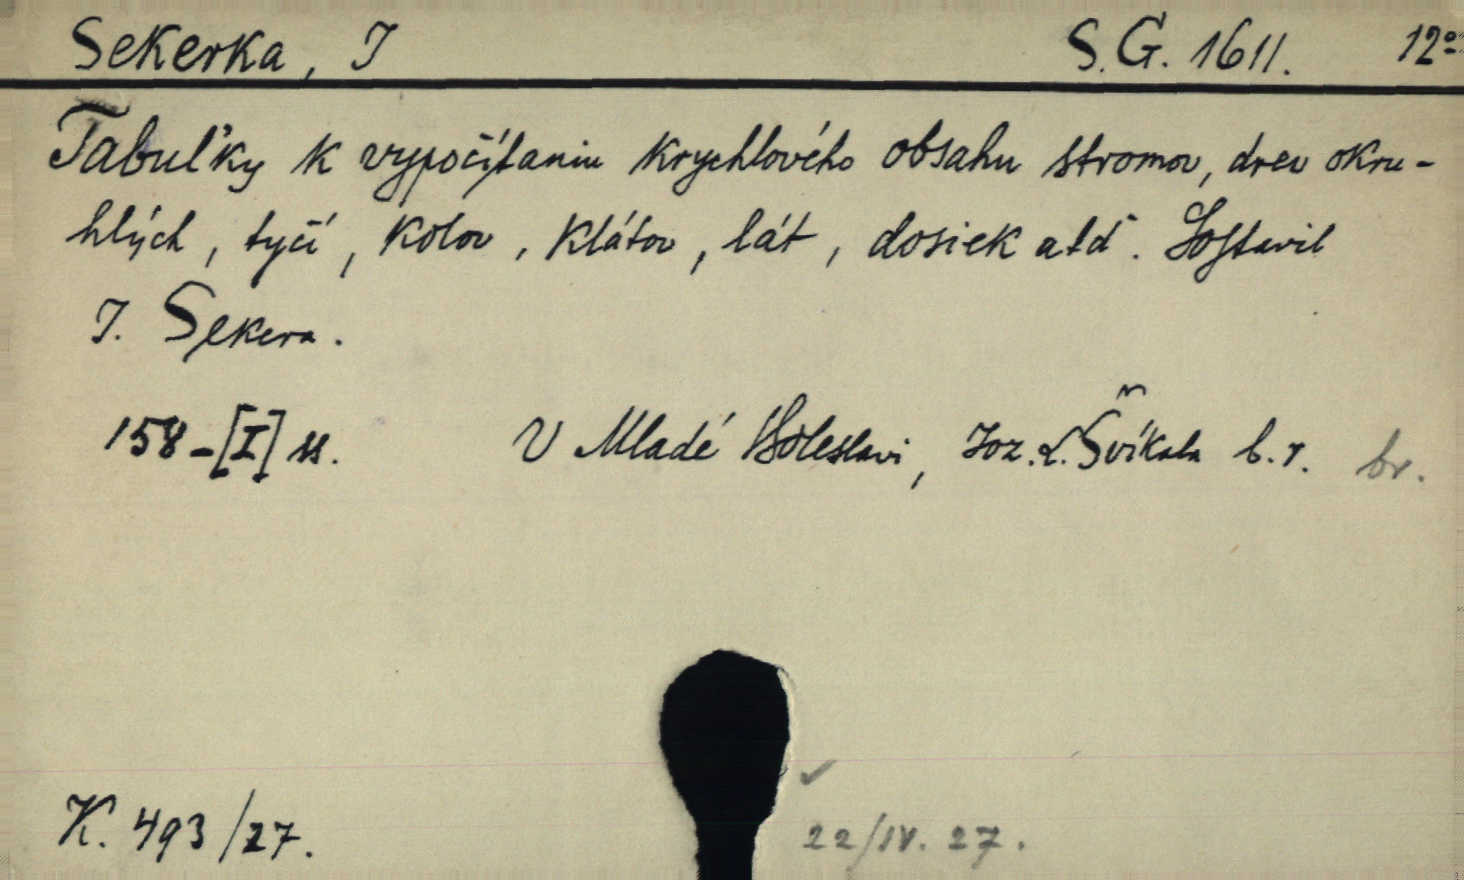 Sekerka, I S.G. 1611. 12°
Tabuľky k vypočítaniu krychlového obsahu stromov, drev okru-
hlých, tyčí, kolov, klátov, lát, dosiek atď. Sostavil
I. Sekera.
158-[I] ss. V Mladé Boleslavi, Joz. L. Švíkala b.r. br.
K. 493/27. 22/IV. 27.